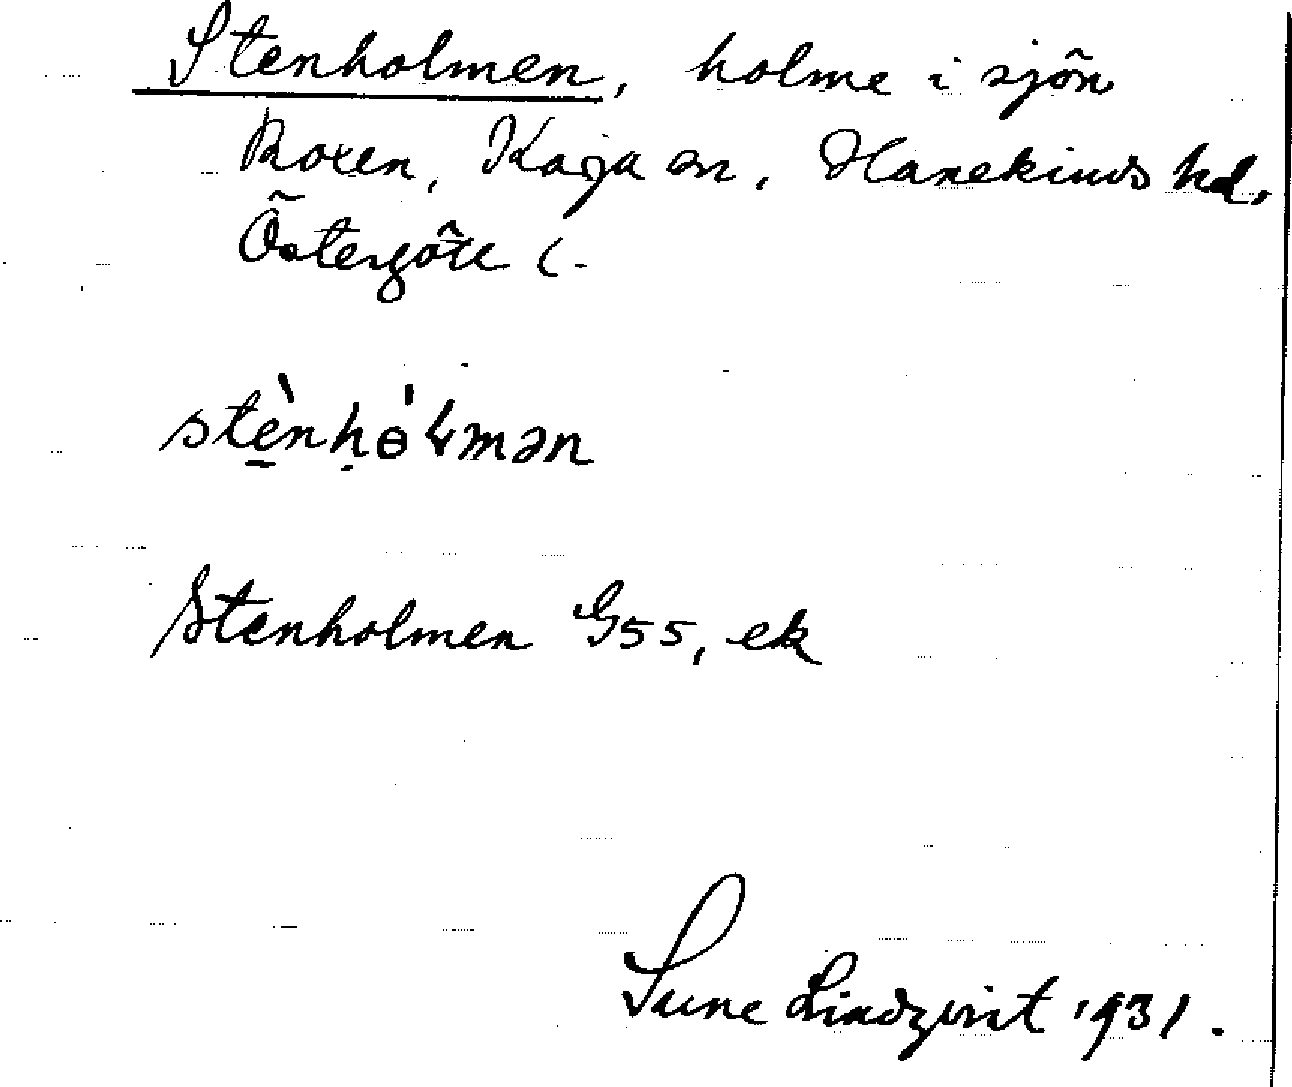 Stenholmen, holme i sjön
Roxen, Kaga sn, Hanekinds hd,
Östergötl.
stènhɵ̣̀ɬmən
Stenholmen G55, ek
Sune Lindqvist 1931.